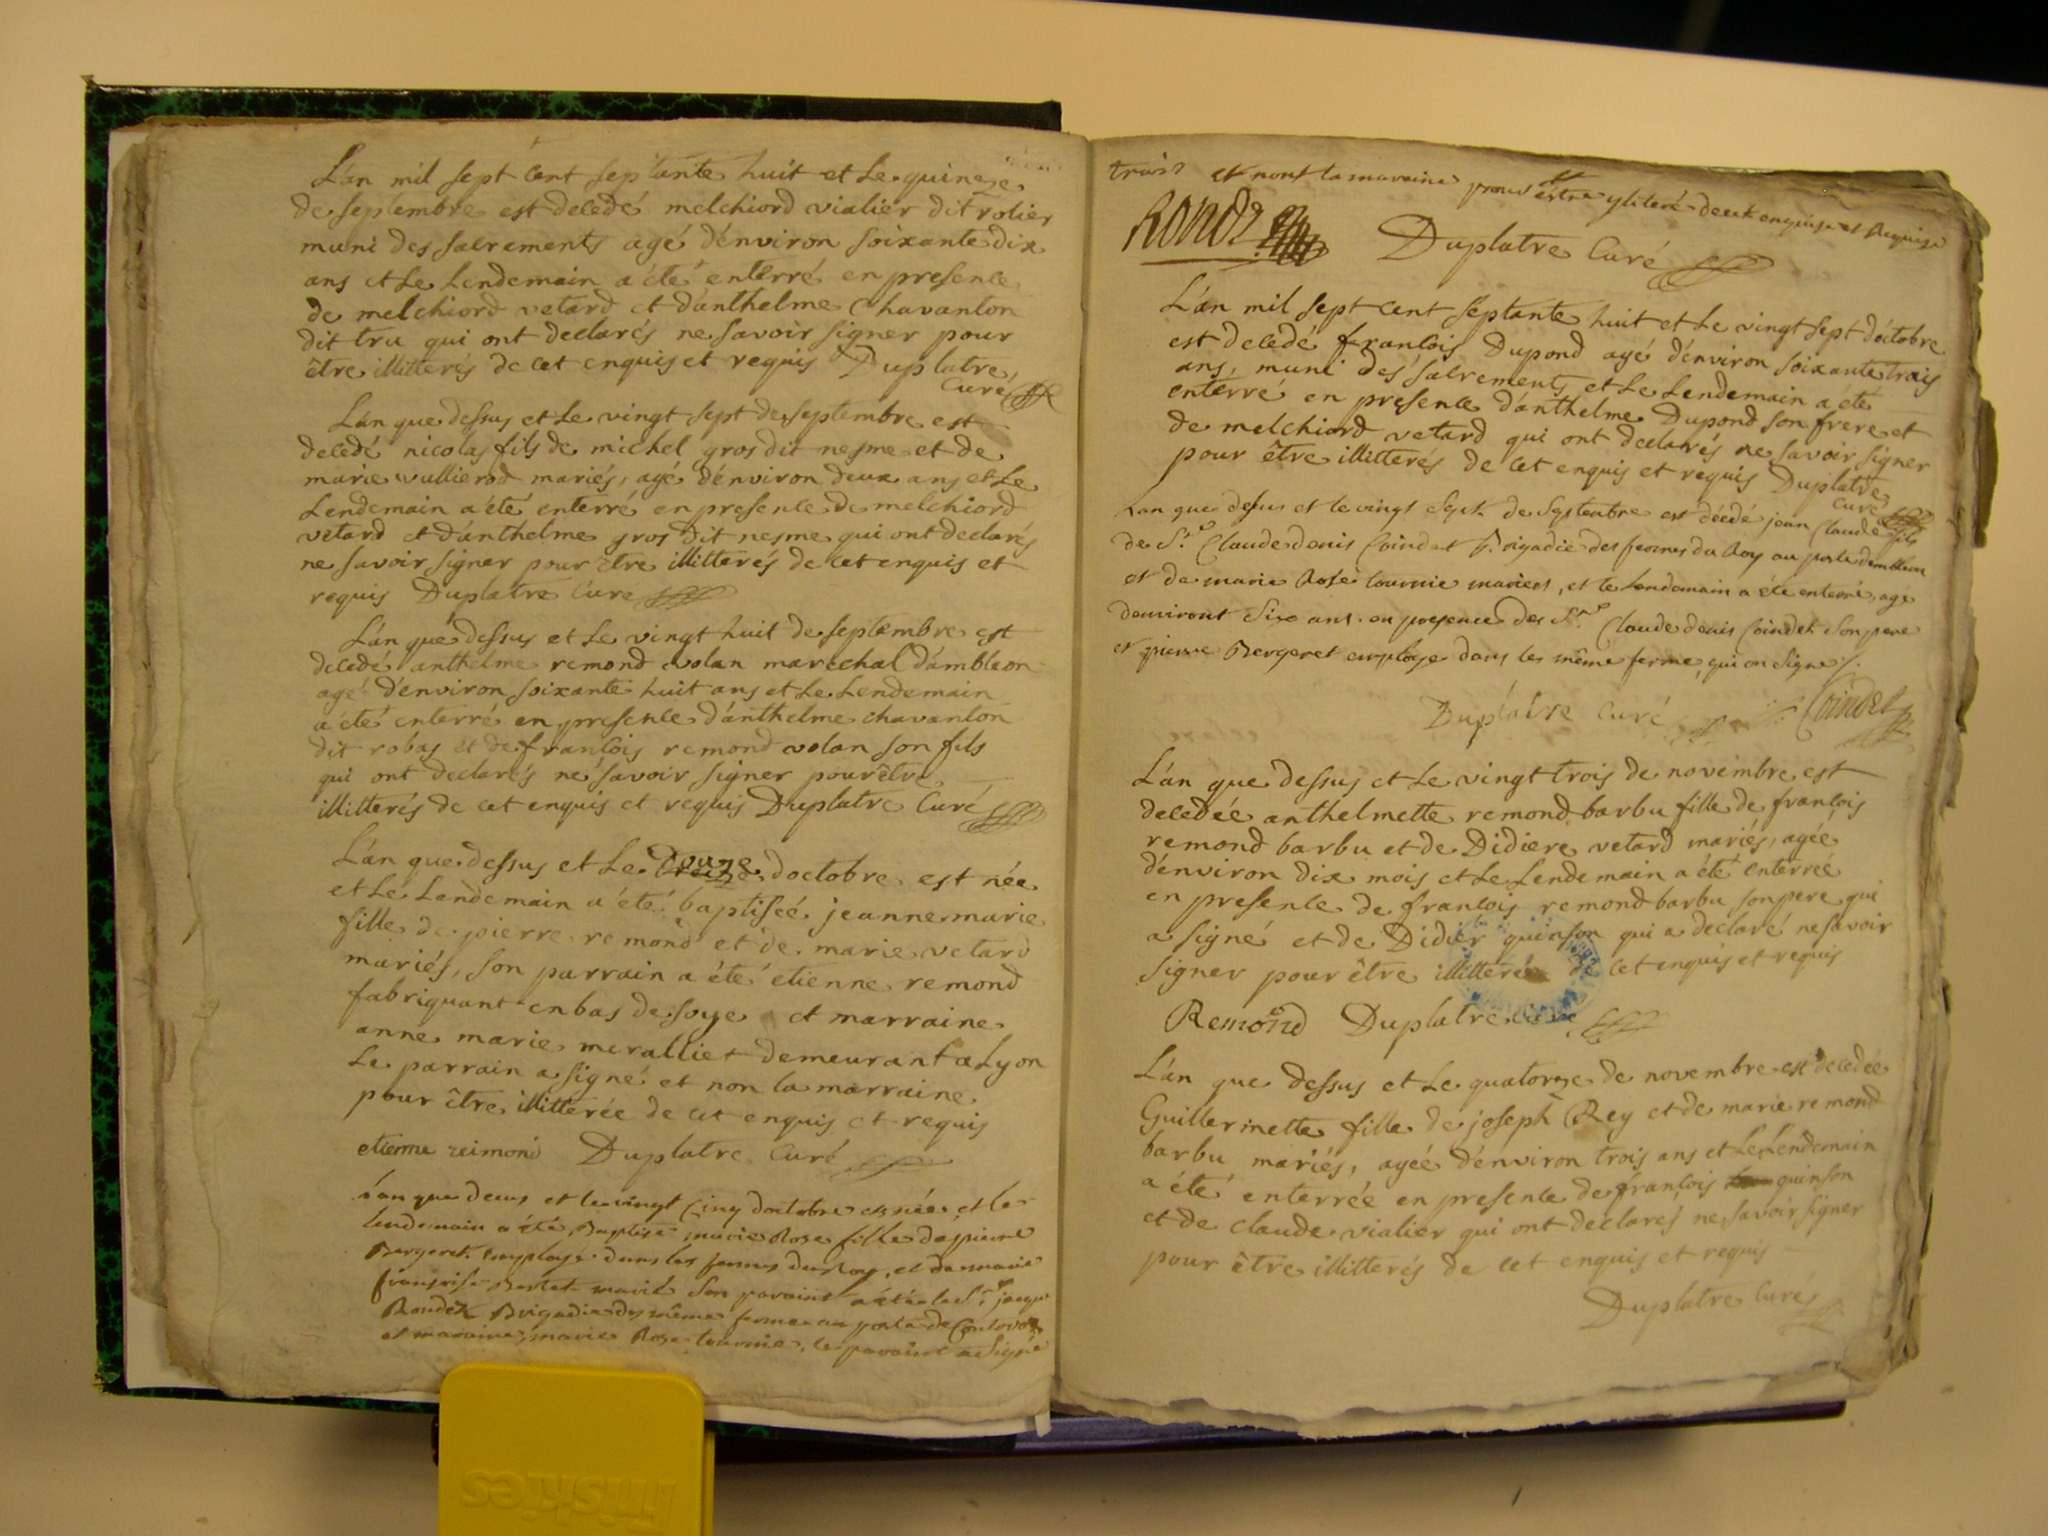 L'an mil sept cent septante huit et Le quinze
de septembre est decedé melchiord vialier dit rolier
muni des sacrements agé d'environ soixante dix
ans et Le Lendemain a été enterré en presence
de melchiord vetard et d'anthelme Chavanton
dit tru qui ont declarés ne savoir signer pour
être illitterés de cet enquis et requis Duplatre
Curé
L'an que dessus et Le vingt sept de septembre est
decedé nicolas fils de michel gros dit nesme et de
marie vullierod mariés, agé d'environ deux ans et Le
Lendemain a été enterré en presence de melchiord
vetard et d'anthelme gros dit nesme qui ont declarés
ne savoir signer pour être illitterés de cet enquis et
requis Duplatre Curé
L'an que dessus et Le vingt huit de septembre est
decedé anthelme remond volan marechal d'ambleon
agé d'environ soixante huit ans et Le Lendemain
a été enterré en presence d'anthelme chavanton
dit robas et de francois remond volan son fils
qui ont declarés ne savoir signer pour être
illitterés de cet enquis et requis Duplatre Curé
L'an que dessus et Le douze d'octobre est née
et Le Lendemain a été baptiseé jeanne marie
fille de pierre remond et de marie vetard
mariés, son parrain a été etienne remond
fabriquant en bas de soye et marraine
anne marie meralliet demeurant a Lyon
Le parrain a signé et non la marraine
pour être illitterée de cet enquis et requis
etienne reimond Duplatre Curé
Lan que deus et le vingt Cinq doctobre es née et le
lendemain a été Baptisé marie Rose fille de pierre
Bergeret employe dans les fermes du Roy, et de marie
françoise mariés Son paraint a été le Sr jaque
Rondet Brigadie des même ferme au poste de
et maraine marie Rose tournie, le paraint a Signé
trois et nont la maraine pour estre yliteré decet enquise et Requise
Rondet Duplatre Curé
L'an mil sept cent septante huit et Le vingt sept d'octobre
est decedé francois Dupond agé d'environ soixante trois
ans, muni des sacrements et Le Lendemain a été
enterré en presence d'anthelme Dupond son frere et
de melchiord vetard qui ont declarés ne savoir signer
pour être illitterés de cet enquis et requis Duplatre
Curé
Lan que desus et le vingt Sept de Septembre est décédé jean Claude fils
de Sr Claude denis Coindet Brigadié des fermes du Roy au poste dambleon
et de marie Rose tournie mariees, et le lendemain a été enterré, age
denviront Six ans en presence des Sr Claude denis Coindet Son pere
et pierre Bergeret employe dans les même ferme, qui on Signe
Duplatre Curé Coindet
L'an que dessus et Le vingt trois de novembre est
decedée anthelmette remond barbu fille de françois
remond barbu et de Didiere vetard mariés, agée
d'environ dix mois et Le Lendemain a été enterreé
en presence de francois remond barbu son pere qui
a signé et de Didier quinson qui a declaré ne savoir
signer pour être illitteré de cet enquis et requis
Remond Duplatre curé
L'an que dessus et Le quatorze de novembre est decedée
Guillermette fille de joseph Rey et de marie remond
barbu mariés, ageé d'environ trois ans et Le Lendemain
a été enterrée en presence de françois quinson
et de claude vialier qui ont declarés ne savoir signer
pour être illitterés de cet enquis et requis
Duplatre Curé